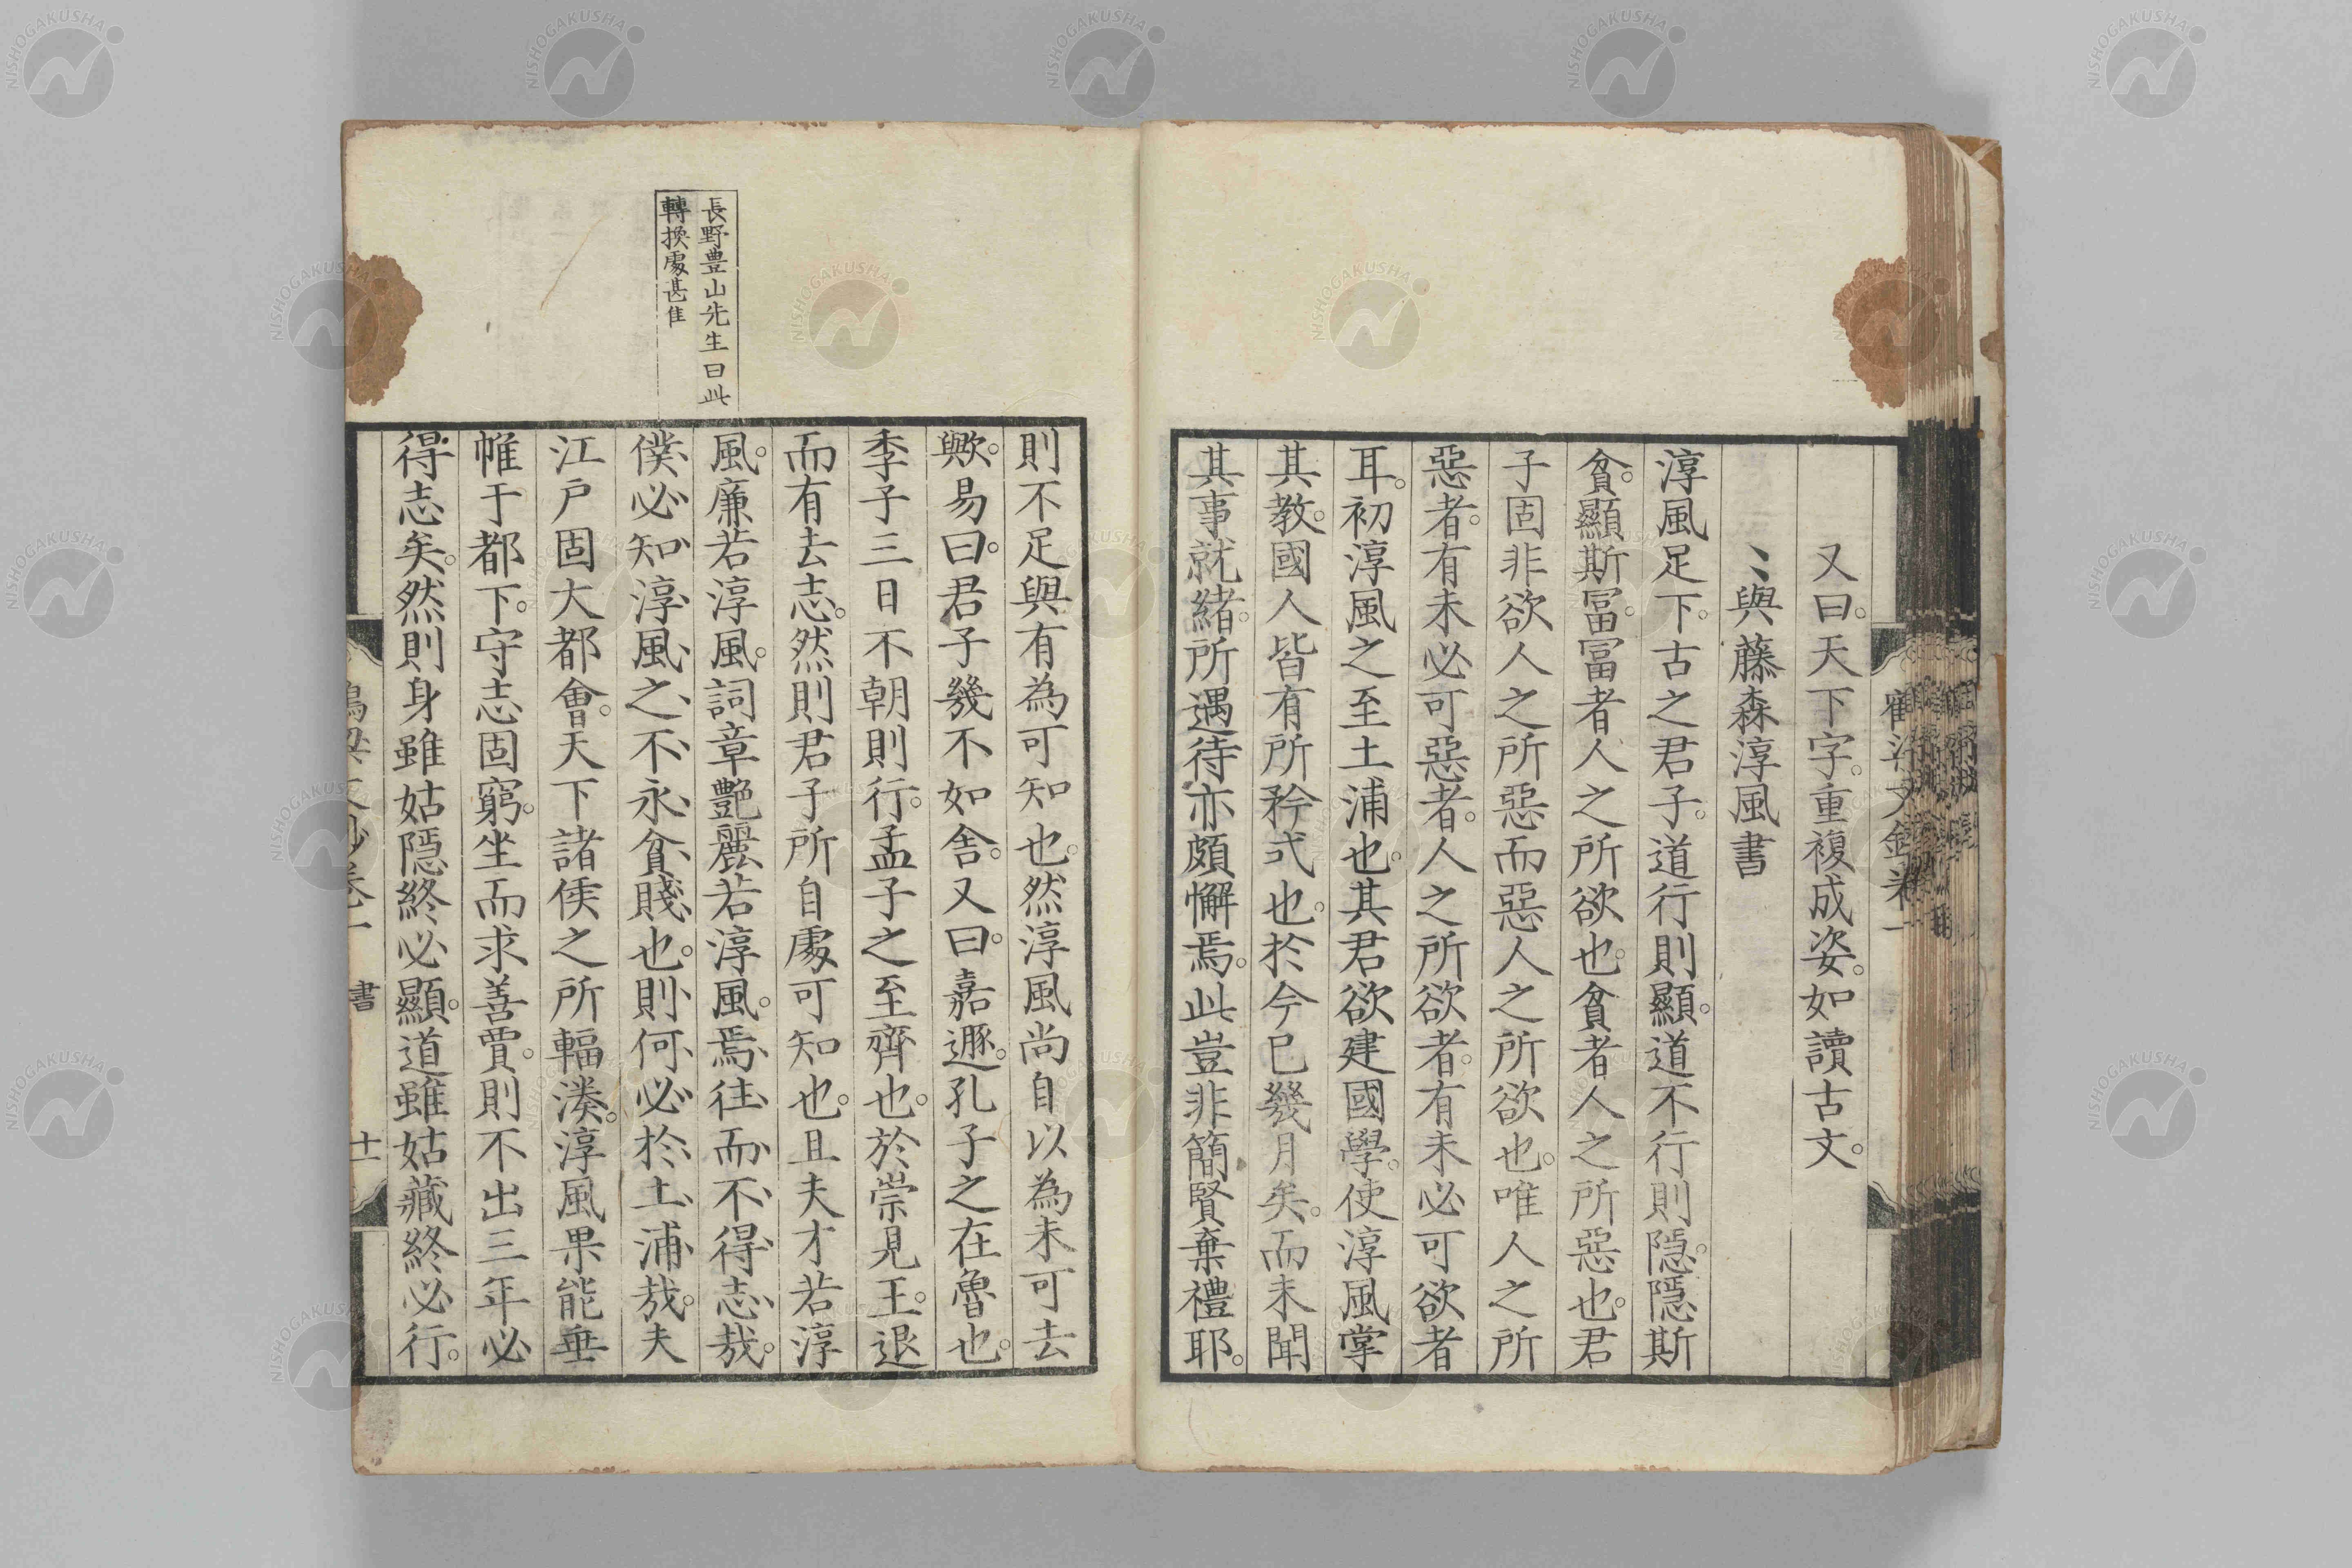 又曰。天下字。重複成姿。如讀古文。
與藤森淳風書
淳風足下。古之君子。道行則顯。道不行則隱。隱斯
貧。顯斯冨。冨者人之所欲也。貧者人之所惡也。君
子固非欲人之所惡而惡人之所欲也。唯人之所
惡者。有未必可惡者。人之所欲者。有未必可欲者
耳。初淳風之至土浦也。其君欲建國學。使淳風掌
其教。國人皆有所矜式也。於今已幾月矣。而未聞
其事就緒。所遇待亦頗懈焉。此豈非簡賢棄禮耶。
則不足與有為可知也。然淳風尚自以為未可去
歟。易曰。君子幾不如舍。又曰。嘉遯。孔子之在魯也。
季子三日不朝則行。孟子之至齊也。於崇見王。退
而有去志。然則君子所自處可知也。且夫才若淳
風。廉若淳風。詞章艷麗若淳風。焉往而不得志哉。
僕必知淳風之不永貧賤也。則何必於土浦哉。夫
江戶固大都會。天下諸侯之所輻湊。淳風果能垂
帷于都下。守志固窮。坐而求善賈。則不出三年必
得志矣。然則身雖姑隱終必顯。道雖姑藏終必行。
長野豊山先生曰此
轉換處甚佳
書
十一
NISHOGAKUSHA